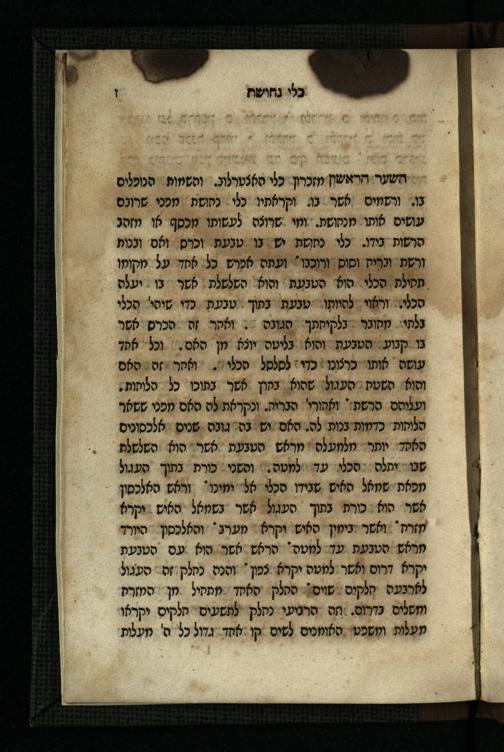 כלי נחושת
ז
השער הראשון מזכרון כלי האצטרלוב. והשמות הנופלים
בו. ורשמים אשר בו. וקראתיו כלי נחושת מפני שרובם
עושים אותו מנחושת. ומי שרוצה לעשותו מכסף או מזהב
הרשות בידו. כלי נחושת יש בו טבעת וכרס ואם ובנות
ורשת ובריח וסוס ורוכבו׳ ועתה אפרש כל אחד על מקומו
תחילת הכלי הוא הטבעת והוא השלשלת אשר בו יעלה
הכלי. וראוי להיותו טבעת בתוך טבעת כדי שיהי׳ הכלי
בלתי מחובר בלקיחתך הגובה . ואחר זה הכרס אשר
בו קבוע הטבעת והוא בליטה יוצא מן האם. וכל אחד
עושה אותו כרצונו כדי לסלסל הכלי . ואחר זה האם
והוא השטח העגול שהוא בחרן אשר בתוכו כל הלוחות.
ועליהם הרשת ׳ ואחורי׳ הבריח. ונקראת לה האם מפני ששאר
הלוחות כדמות בנות לה. האם יש בה גובה שנים אלכסונים
האחד יותר מלמעלה מראש הטבעת אשר הוא השלשלת
שבו יתלה הכלי עד למטה. והשני כורת בתוך העגול
מפאת שמאל האיש שבידו הכלי אל ימינו׳ וראש האלכסון
אשר הוא כורת בתוך העגול אשר בשמאל האיש יקרא
מזרח׳ ואשר בימין האיש יקרא מערב׳ והאלכסון היורד
מראש הטבעת עד למטה׳ הראש אשר הוא עם הטבעת
יקרא דרום ואשר למטה יקרא צפון׳ והנה נחלק זה העגול
לארבעה חלקים שוים׳ החלק האחד מתחיל מן המזרח
ומשלים בדרום. וזה הרביעי נחלק לתשעים חלקים יקראו
מעלות ומשפט האומנים לשים קו אחד גדול כל ה׳ מעלות